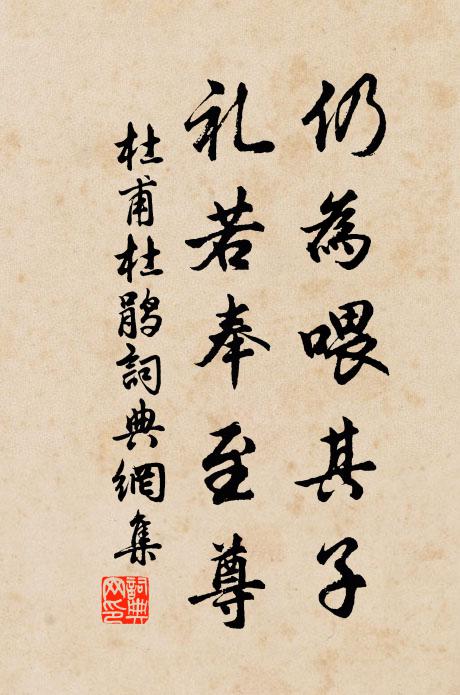 仍為喂其子
礼若奉至尊
杜甫杜鹃詞典網集
詞典網印